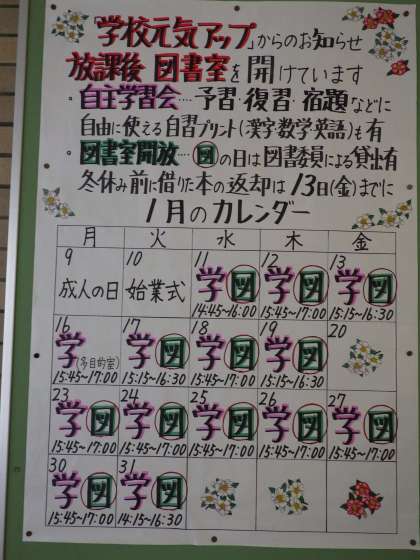 「学校元気アップ」からのお知らせ
放課後 図書室を開けています
・自主学習会…予習・復習・宿題などに
自由に使える自習プリント(漢字数学英語)も有
・図書室開放…図の日は図書委員による貸出有
冬休み前に借りた本の返却は13日(金)までに
1月のカレンダー
月 火 水 木 金
9 10 11 12 13
成人の日 始業式 学図 学図 学図
14:45~16:00 15:45~17:00 15:15~16:30
16 17 18 19 20
学(多目的室) 学図 学図 学図
15:45~17:00 15:15~16:30 15:45~17:00 15:45~17:00
23 24 25 26 27
学図 学図 学図 学図 学図
15:45~17:00 15:45~17:00 15:45~17:00 15:45~17:00 15:15~16:30
30 31
学図 学図
15:45~17:00 14:15~16:30